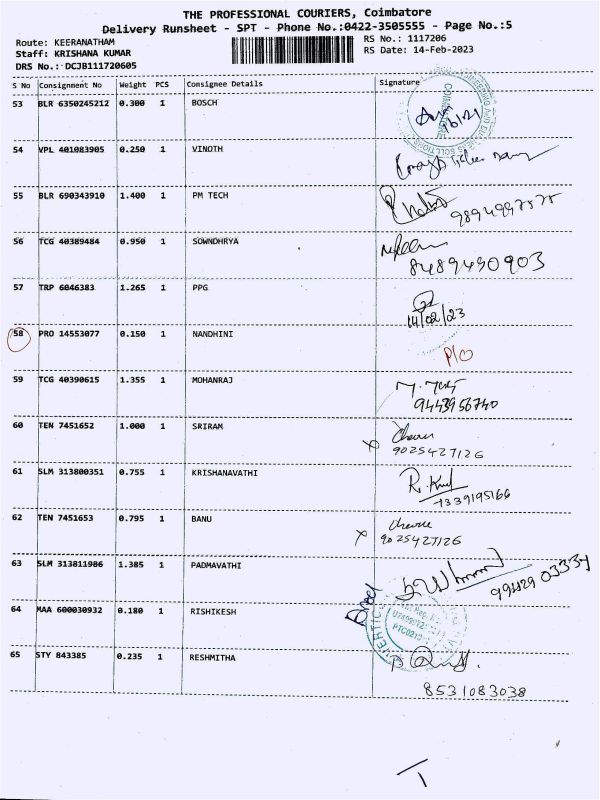 THE PROFESSIONAL COURIERS, Coimbatore
Delivery Runsheet - SPT - Phone No.:0422-3505555 - Page No.:5
Route: KEERANATHAM
RS No.: 1117206
Staff: KRISHANA KUMAR
RS Date: 14-Feb-2023
DRS No.: DCJB111720605
S No Consignment No Weight PCS Consignee Details Signature
53 BLR 6350245212 0.300 1 BOSCH
54 VPL 401083905 0.250 1 VINOTH
55 BLR 690343910 1.400 1 PM TECH
56 TCG 40389484 0.950 1 SOWNDHRYA
8489490903
57 TRP 6046383 1.265 1 PPG
14/02/23
58 PRO 14553077 0.150 1 NANDHINI
P/O
59 TCG 40390615 1.355 1 MOHANRAJ
9443956740
60 TEN 7451652 1.000 1 SRIRAM
x
9025427126
61 SLM 313800351 0.755 1 KRISHANAVATHI
7339195166
62 TEN 7451653 0.795 1 BANU
x
9025427126
63 SLM 313811986 1.385 1 PADMAVATHI
64 MAA 600030932 0.180 1 RISHIKESH
65 STY 843385 0.235 1 RESHMITHA
8531083038